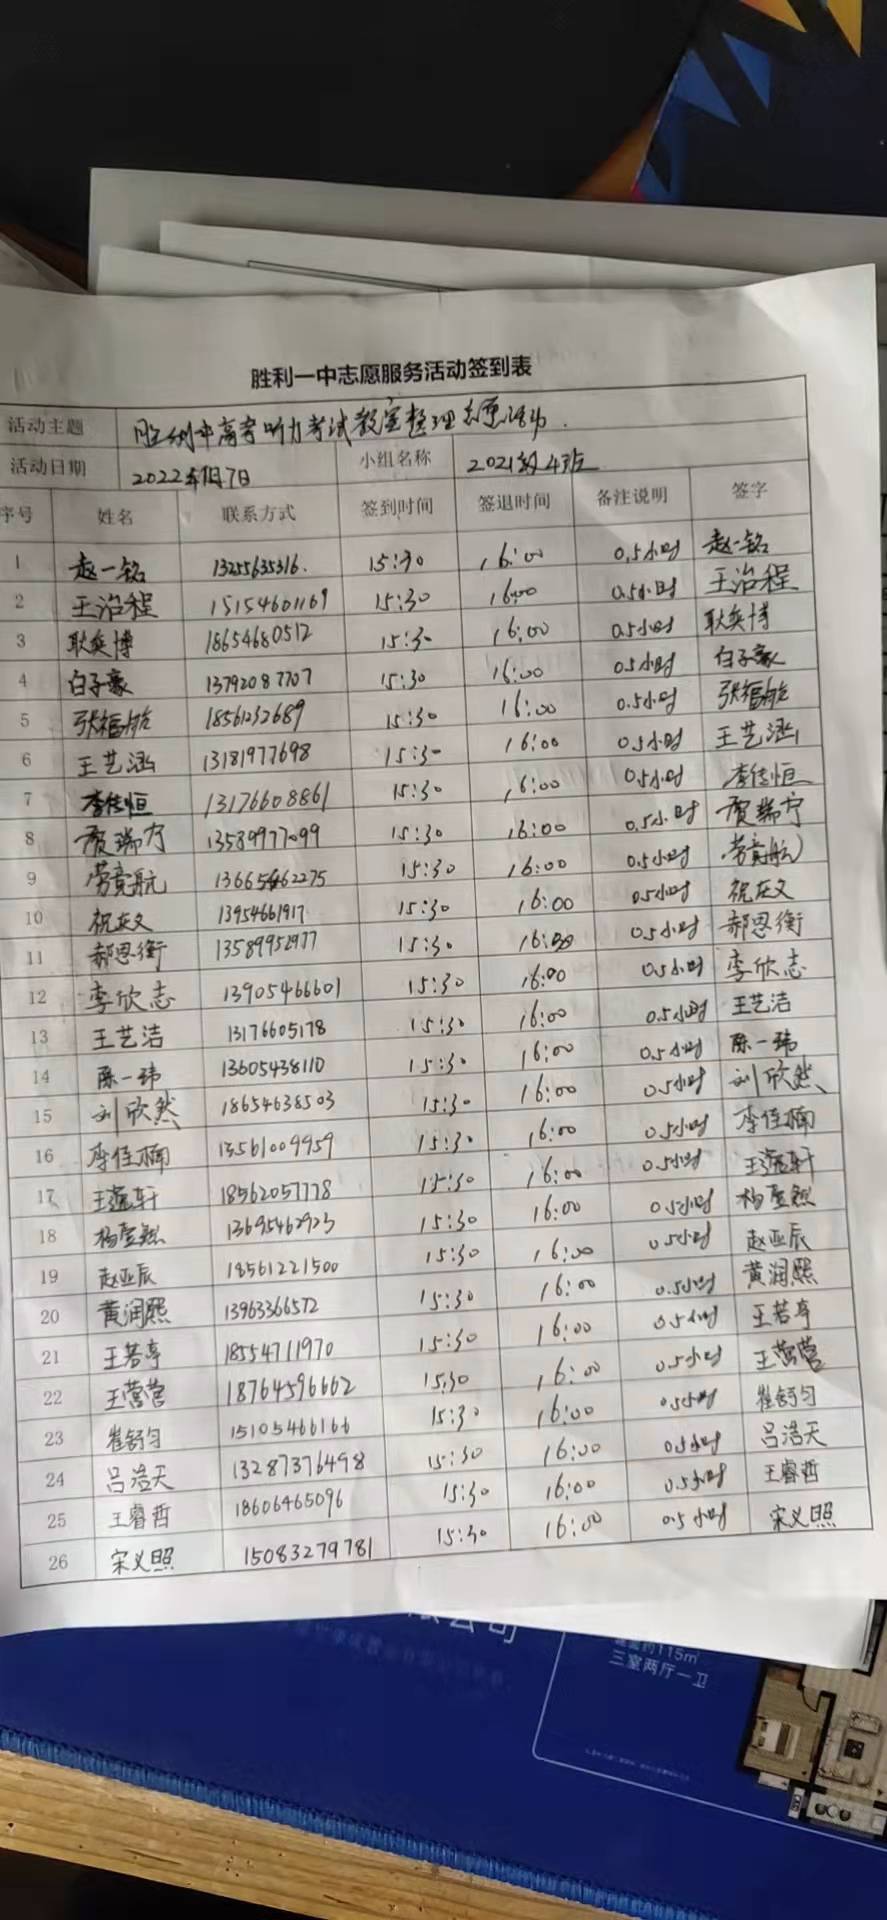 胜利一中志愿服务活动签到表
活动主题 胜利一中高考听力考试教室整理志愿活动.
活动日期 2022年1月7日 小组名称 2021级4班
序号 姓名 联系方式 签到时间 签退时间 备注说明 签字
1 赵一铭 13255635316. 15:30 16:00 0.5小时 赵一铭
2 王治程 15154601169 15:30 16:00 0.5小时 王治程
3 耿奕博 18654680512 15:30 16:00 0.5小时 耿奕博
4 白子豪 13792087707 15:30 16:00 0.5小时 白子豪
5 张福皓 18561232689 15:30 16:00 0.5小时 张福皓
6 王艺涵 13181977698 15:30 16:00 0.5小时 王艺涵
7 李佳恒 13176608861 15:30 16:00 0.5小时 李佳恒
8 贾瑞宁 13589977099 15:30 16:00 0.5小时 贾瑞宁
9 劳竟航 13665462275 15:30 16:00 0.5小时 劳竟航
10 祝友文 13954661917 15:30 16:00 0.5小时 祝友文
11 郝恩衡 13589952977 15:30 16:00 0.5小时 郝恩衡
12 李欣志 13905466601 15:30 16:00 0.5小时 李欣志
13 王艺洁 13176605178 15:30 16:00 0.5小时 王艺洁
14 陈一玮 13605438110 15:30 16:00 0.5小时 陈一玮
15 刘欣然 18654638503 15:30 16:00 0.5小时 刘欣然
16 李佳楠 13561009959 15:30 16:00 0.5小时 李佳楠
17 王蕴轩 18562057778 15:30 16:00 0.5小时 王蕴轩
18 杨奎然 13695462923 15:30 16:00 0.5小时 杨奎然
19 赵亚辰 18561221500 15:30 16:00 0.5小时 赵亚辰
20 黄润熙 13963366572 15:30 16:00 0.5小时 黄润熙
21 王若亭 18554711970 15:30 16:00 0.5小时 王若亭
22 王营营 18764596662 15:30 16:00 0.5小时 王营营
23 崔舒匀 15105466166 15:30 16:00 0.5小时 崔舒匀
24 吕浩天 13287376498 15:30 16:00 0.5小时 吕浩天
25 王睿哲 18606465096 15:30 16:00 0.5小时 王睿哲
26 宋义照 15083279781 15:30 16:00 0.5小时 宋义照
公司
115m²
三室两厅一卫